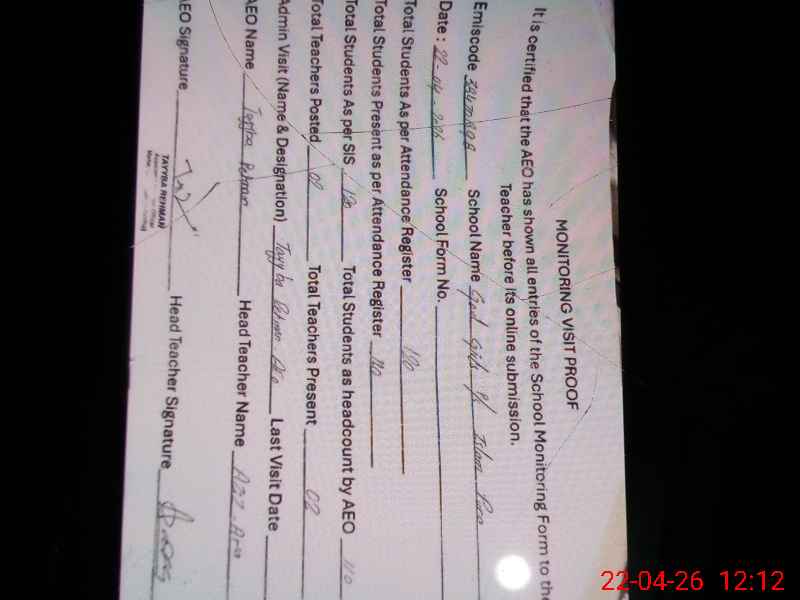 MONITORING VISIT PROOF
It is certified that the AEO has shown all entries of the School Monitoring Form to the
Teacher before its online submission.
Emiscode School Name Govt girls P/
Date: 22-04-2026 School Form No.
Total Students As per Attendance Register 120
Total Students Present as per Attendance Register 110
Total Students As per SIS 120 Total Students as headcount by AEO 110
Total Teachers Posted 02 Total Teachers Present 02
Admin Visit (Name & Designation) Tayyba Rehman AEO Last Visit Date
AEO Name Tayyba Rehman Head Teacher Name
AEO Signature Head Teacher Signature
TAYYBA REHMAN
22-04-26 12:12